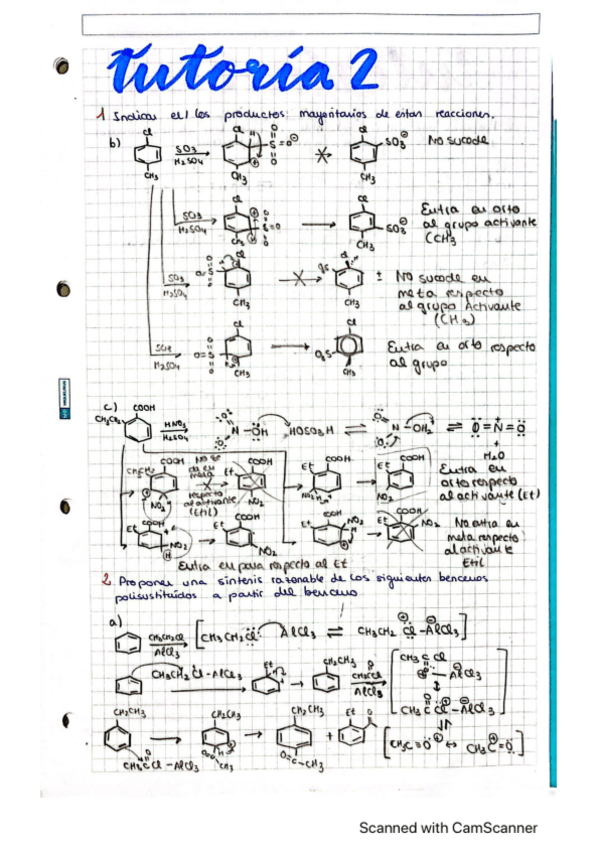 Tutoría 2
1 Indicar el/los productos mayoritarios de estas reacciones.
b)
Cl
CH3
SO3
H2SO4
Cl
CH3
Cl
SO3⊖
CH3
No sucede
SO3
H2SO4
Cl
SO3⊖
CH3
Entra en orto
al grupo activante
(CH3
SO3
H2SO4
Cl
CH3
Cl
CH3
No sucede en
meta respecto
al grupo Activante
(CH3)
SO3
H2SO4
Cl
CH3
Cl
CH3
Entra en orto respecto
al grupo
c)
COOH
CH3CH2
HNO3
H2SO4
N-OH
HOSO3H
N-OH2
O=N=O
+
H2O
CH3CH2
COOH
NO2
No se
da en
meta
respecto
al activante
(Etil)
Et
COOH
NO2
Et
COOH
Et
COOH
NO2
Entra en
orto respecto
al activante (Et)
Et
COOH
NO2
H
Et
COOH
NO2
Et
COOH
NO2
H
Et
COOH
NO2
No entra en
meta respecto
al activante
Etil
Entra en para respecto al Et
2. Proponer una síntesis razonable de los siguientes bencenos
polisustituídos a partir del benceno
a)
CH3CH2Cl
AlCl3
[CH3CH2Cl AlCl3 ⇌ CH3CH2 Cl-AlCl3]
CH3CH2Cl-AlCl3
Et
CH2CH3
AlCl3
CH3 C Cl
AlCl3
CH3 C Cl-AlCl3
CH2CH3
CH3CCl-AlCl3
CH2CH3
CH3
CH2CH3
O=C-CH3
+
Et
[CH3C≡O ↔ CH3C=O]
Scanned with CamScanner